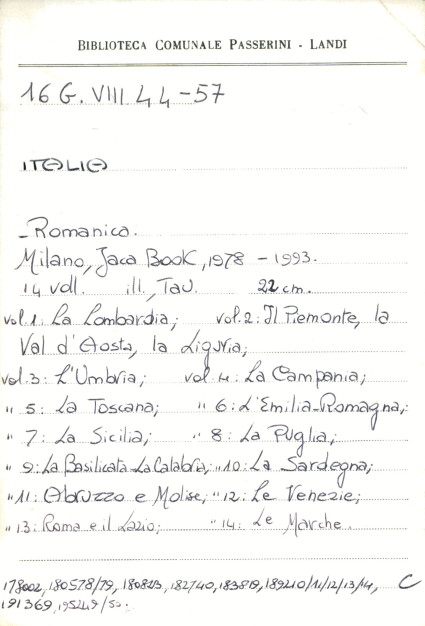 BIBLIOTECA COMUNALE PASSERINI - LANDI
16 G. VIII 44-57
ITALIA
-Romanica.
Milano, Jaca Book, 1978 - 1993.
14 voll. ill., Tav. 22 cm.
vol. 1: La Lombardia; vol. 2: Il Piemonte, la
Val d'Aosta, la Liguria;
vol. 3: L'Umbria; vol. 4: La Campania;
" 5: La Toscana; " 6: L'Emilia-Romagna;
" 7: La Sicilia; " 8: La Puglia;
" 9: La Basilicata La Calabria; "10: La Sardegna;
"11: Abruzzo e Molise; "12: Le Venezie;
"13: Roma e il Lazio; "14: Le Marche.
178002, 180578/79, 182740, 183819, 189210/11/12/13/14, C
191369,